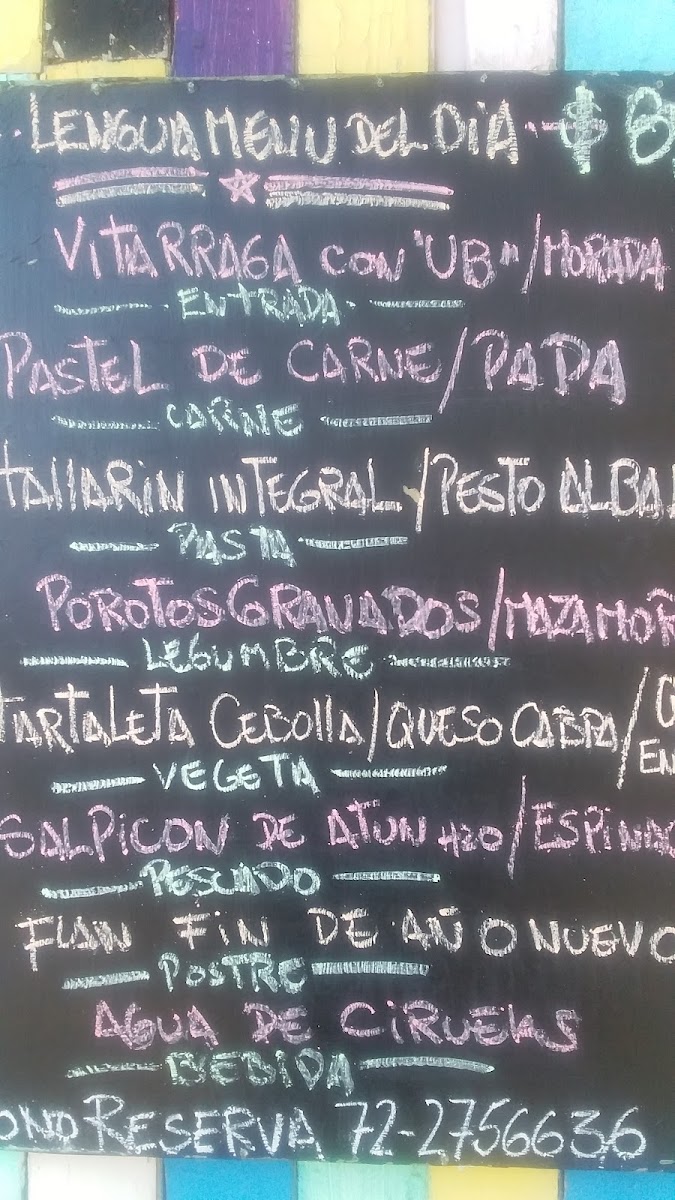 LENGUA MENU DEL DIA $ 8
VITARRAGA CON "UB"/MORADA
ENTRADA
PASTEL DE CARNE/PAPA
CARNE
TALLARIN INTEGRAL/PESTO ALBA
PASTA
POROTOS GRANADOS/MAZAMOR
LEGUMBRE
TARTALETA CEBOLLA/QUESO CABRA/
VEGETA
SALPICON DE ATUN H2O/ESPINAC
PESCADO
FLAN FIN DE AÑO NUEVO
POSTRE
AGUA DE CIRUELAS
BEBIDA
ONO RESERVA 72-2756636